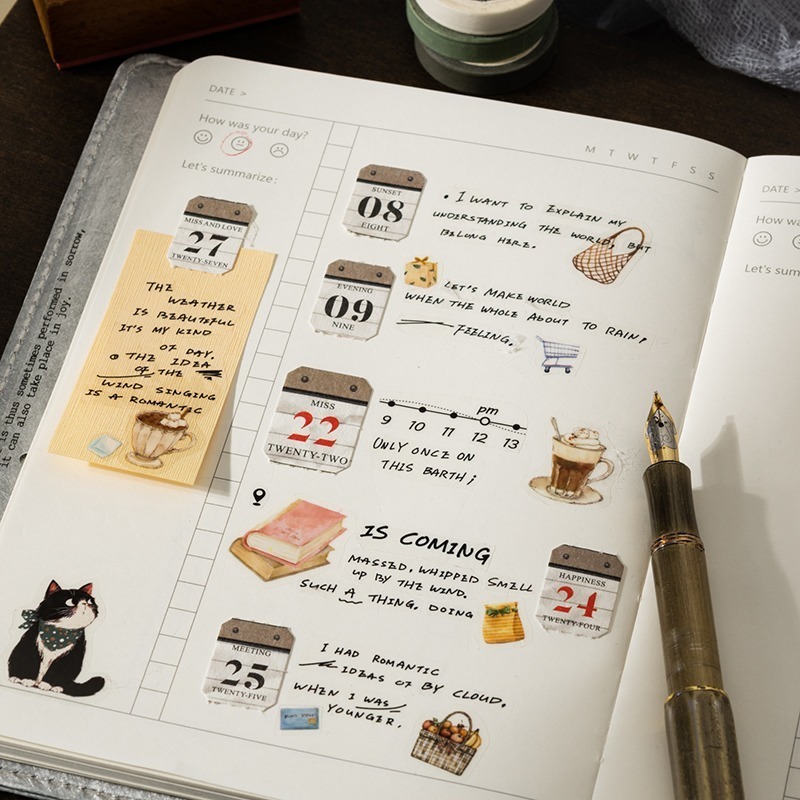 DATE >
How was your day?
Let's summarize:
M T W T F S S
MISS AND LOVE
27
TWENTY-SEVEN
THE
WEATHER
IS BEAUTEFUL
IT'S MY KIND
OF DAY.
THE IDEA
OF THE
WIND SINGING
IS A ROMANTIC
SUNSET
08
EIGHT
• I WANT TO EXPLAIN MY
UNDERSTANDING THE WORLD, BUT
BELONG HERE.
EVENING
09
NINE
LET'S MAKE WORLD
WHEN THE WHOLE ABOUT TO RAIN,
FEELING.
MISS
22
TWENTY-TWO
pm
9 10 11 12 13
ONLY ONCE ON
THIS BARTH;
IS COMING
MASSED, WHIPPED SMELL
UP BY THE WIND.
SUCH A THING. DOING
HAPPINESS
24
TWENTY-FOUR
MEETING
25
TWENTY-FIVE
I HAD ROMANTIC
IDZAS OF BY CLOUD.
WHEN I WAS
YOUNGER.
is thus sometimes performed in sorrow,
it can also take place in joy.
DATE >
How wa
Let's sum